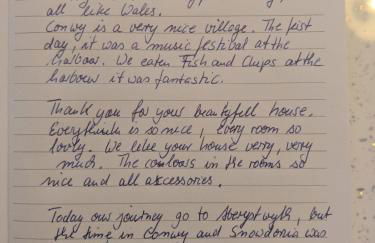 all like Wales.
Conwy is a very nice village. The first
day, it was a music festival at the
Harbour. We eaten Fish and Chips at the
harbour it was fantastic.
Thank you for your beautyfull house.
Everythink is so nice, every room so
lovly. We like your house verry, very
much. The coulours in the rooms so
nice and all akcessories.
Today our journey go to Aberystwyth, but
the time in Conwy and Snowdonia was